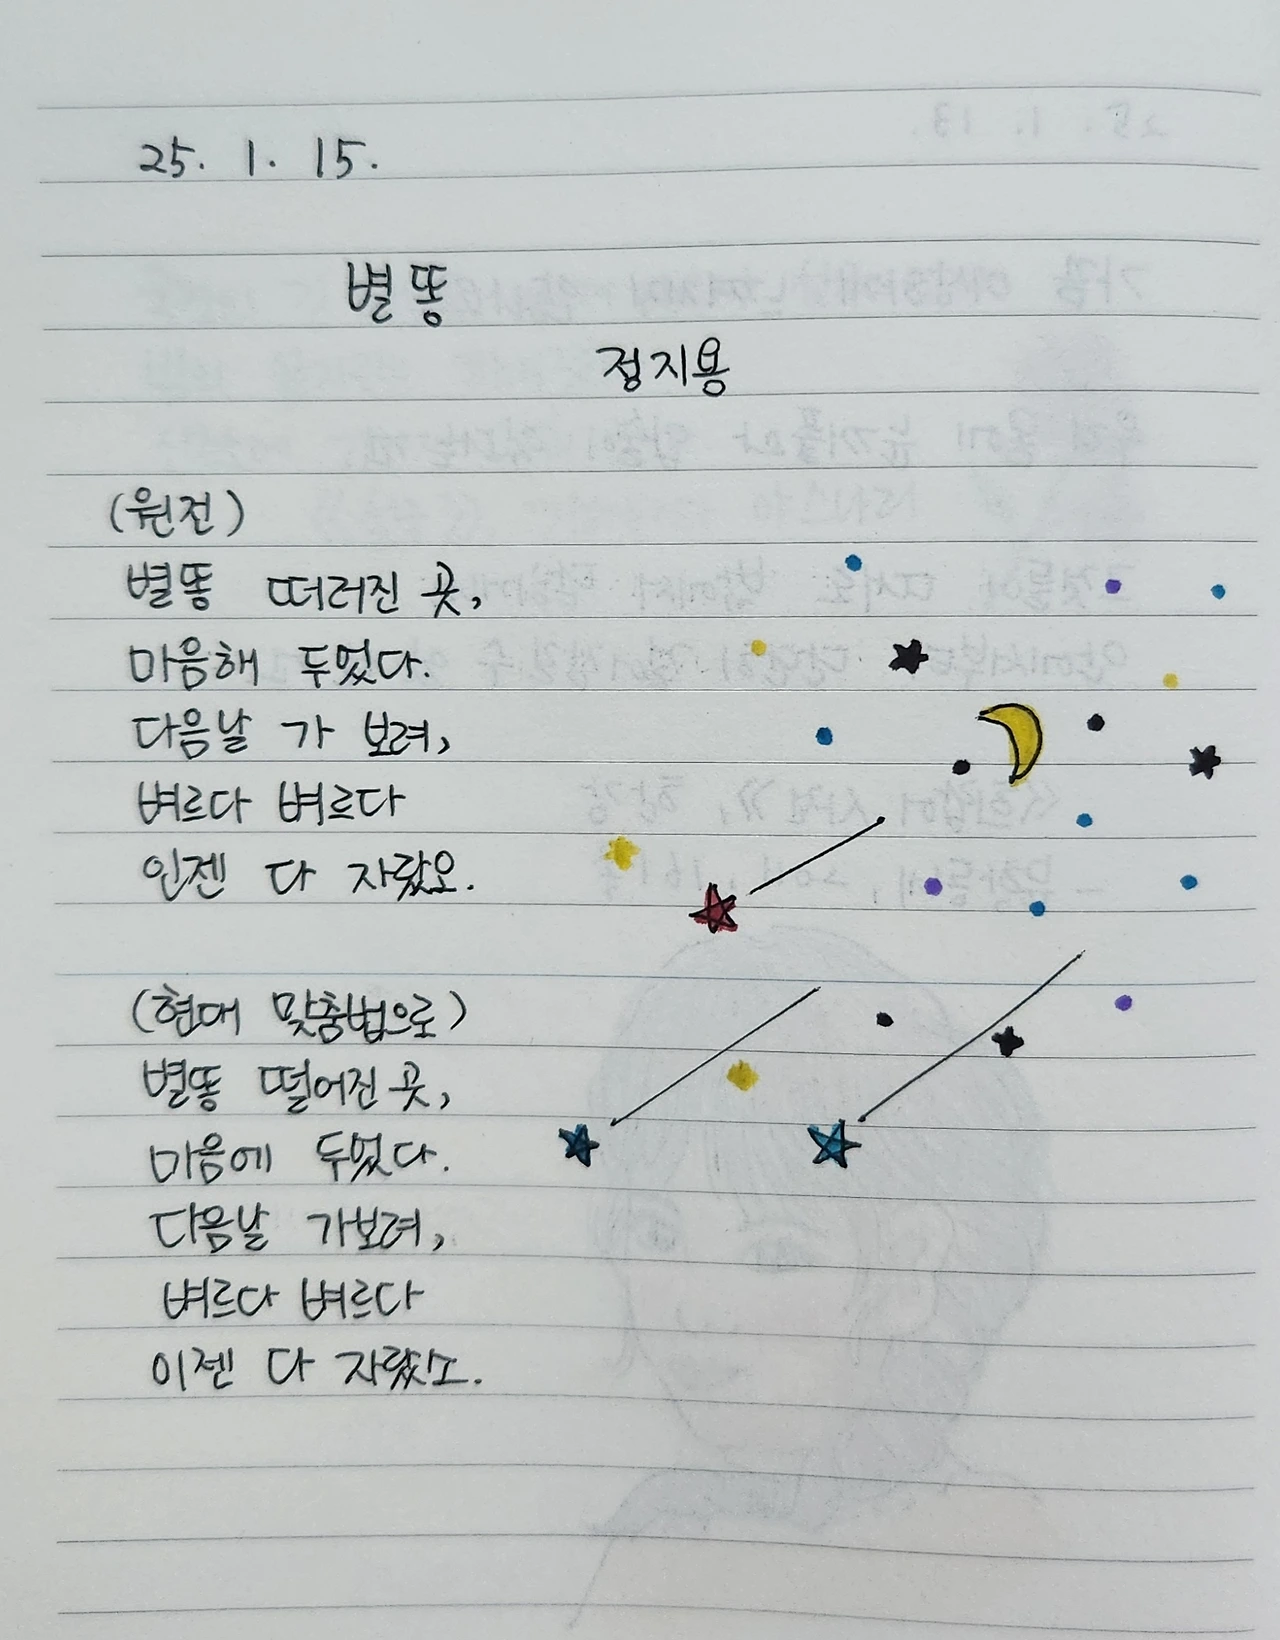 25. 1. 15.
별똥
정지용
(원전)
별똥 떠러진 곳,
마음해 두었다.
다음날 가 보려,
벼르다 벼르다
인젠 다 자랐오.
(현대 맞춤법으로)
별똥 떨어진 곳,
마음에 두었다.
다음날 가보려,
벼르다 벼르다
이젠 다 자랐소.